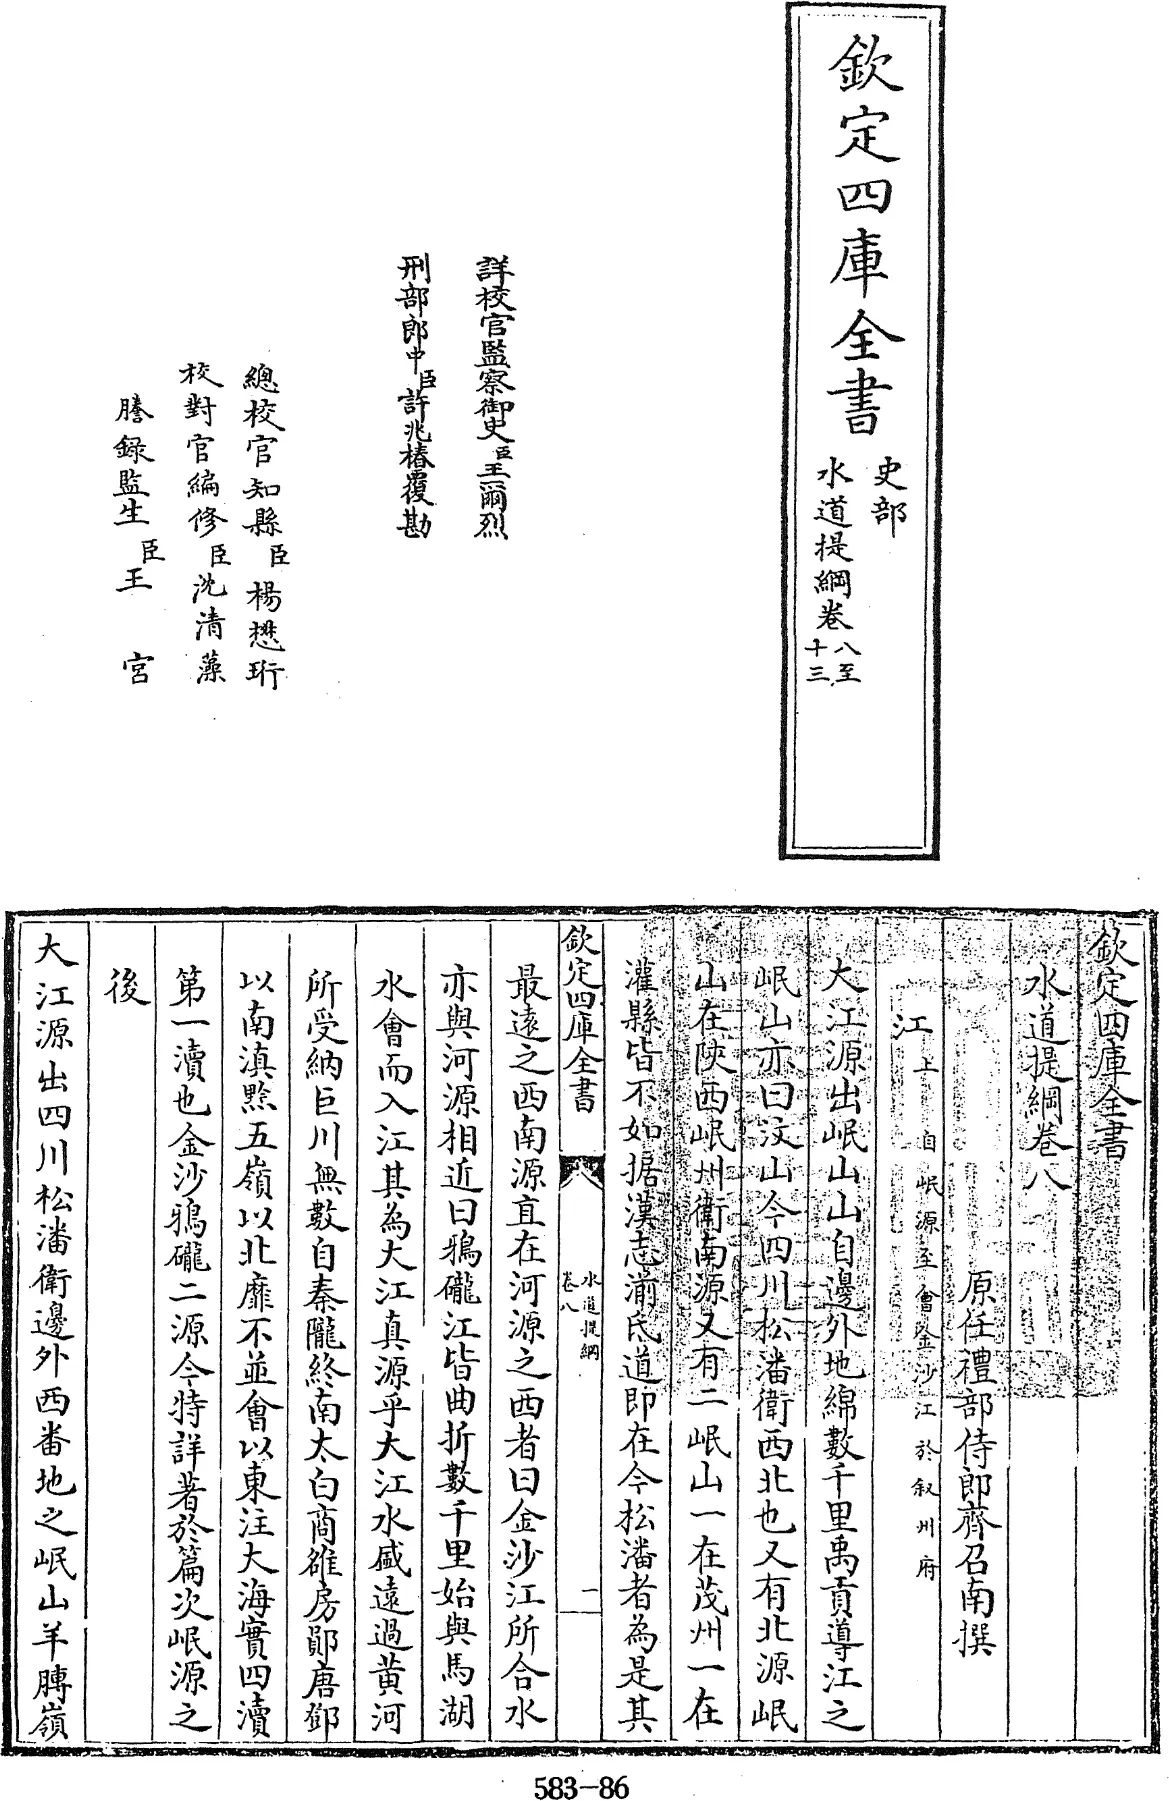 欽定四庫全書
史部
水道提綱卷八至十三
詳校官監察御史臣王爾烈
刑部郎中臣許兆椿覆勘
總校官知縣臣楊懋珩
校對官編修臣沈清藻
謄錄監生臣王宮
欽定四庫全書
水道提綱卷八
原任禮部侍郎齊召南撰
江上自岷源至會金沙江於叙州府
大江源出岷山山自邊外地綿數千里禹貢導江之
岷山亦曰汶山今四川松潘衛西北也又有北源岷
山在陝西岷州衛南源又有二岷山一在茂州一在
灌縣皆不如据漢志湔氐道即在今松潘者為是其
欽定四庫全書
水道提綱
卷八
一
最遠之西南源直在河源之西者曰金沙江所合水
亦與河源相近曰鴉礲江皆曲折數千里始與馬湖
水會而入江其為大江真源乎大江水盛遠過黃河
所受納巨川無數自秦隴終南太白商雒房鄖唐鄧
以南滇黔五嶺以北靡不並會以東注大海實四瀆
第一瀆也金沙鴉礲二源今特詳著於篇次岷源之
後
大江源出四川松潘衛邊外西番地之岷山羊膊嶺
583-86